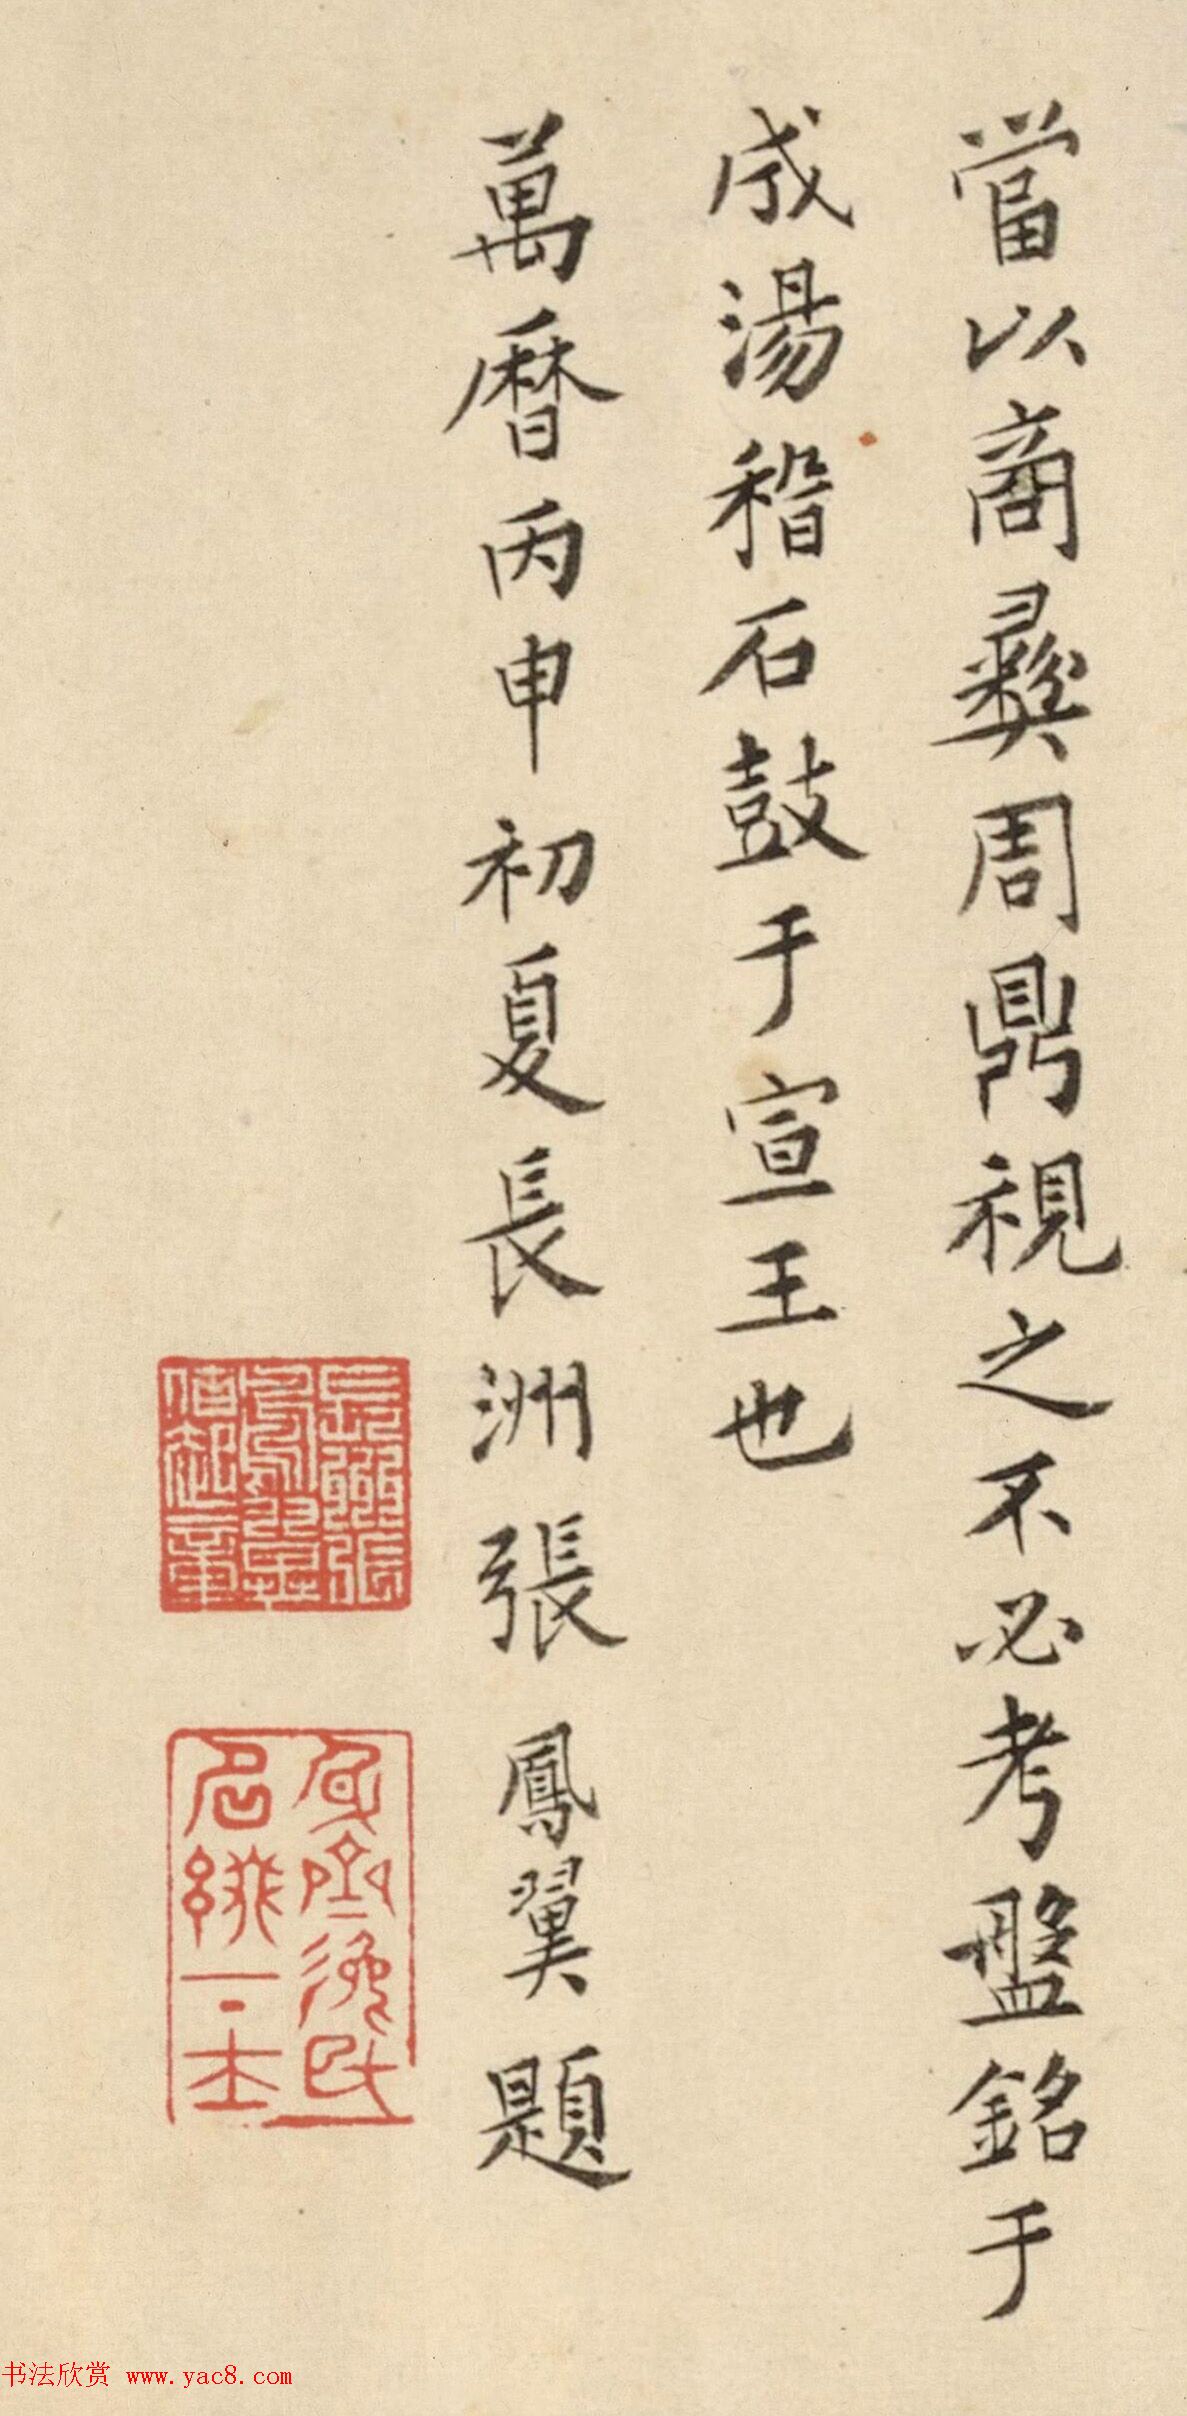 當以商彝周鼎視之不必考盤銘于
成湯稽石鼓于宣王也
萬曆丙申初夏長洲張鳳翼題
書法欣赏 www.yac8.com